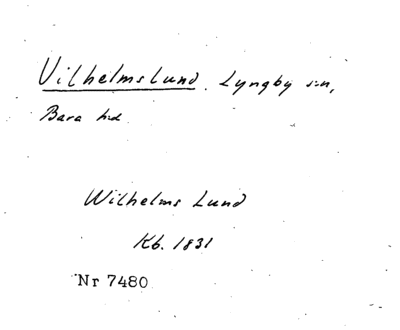 Vilhelmslund. Lyngby sn,
Bara hd
Wilhelms Lund
Kb. 1831
Nr 7480